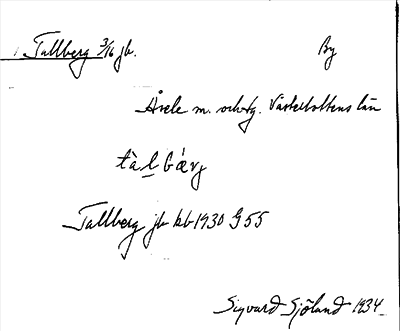 Tallberg 3/16 jb. By
Åsele m. o. lvtg. Västerbottens län
tàlbǽrj
Tallberg jb kb 1930 G 55
Sigvard Sjöland 1934